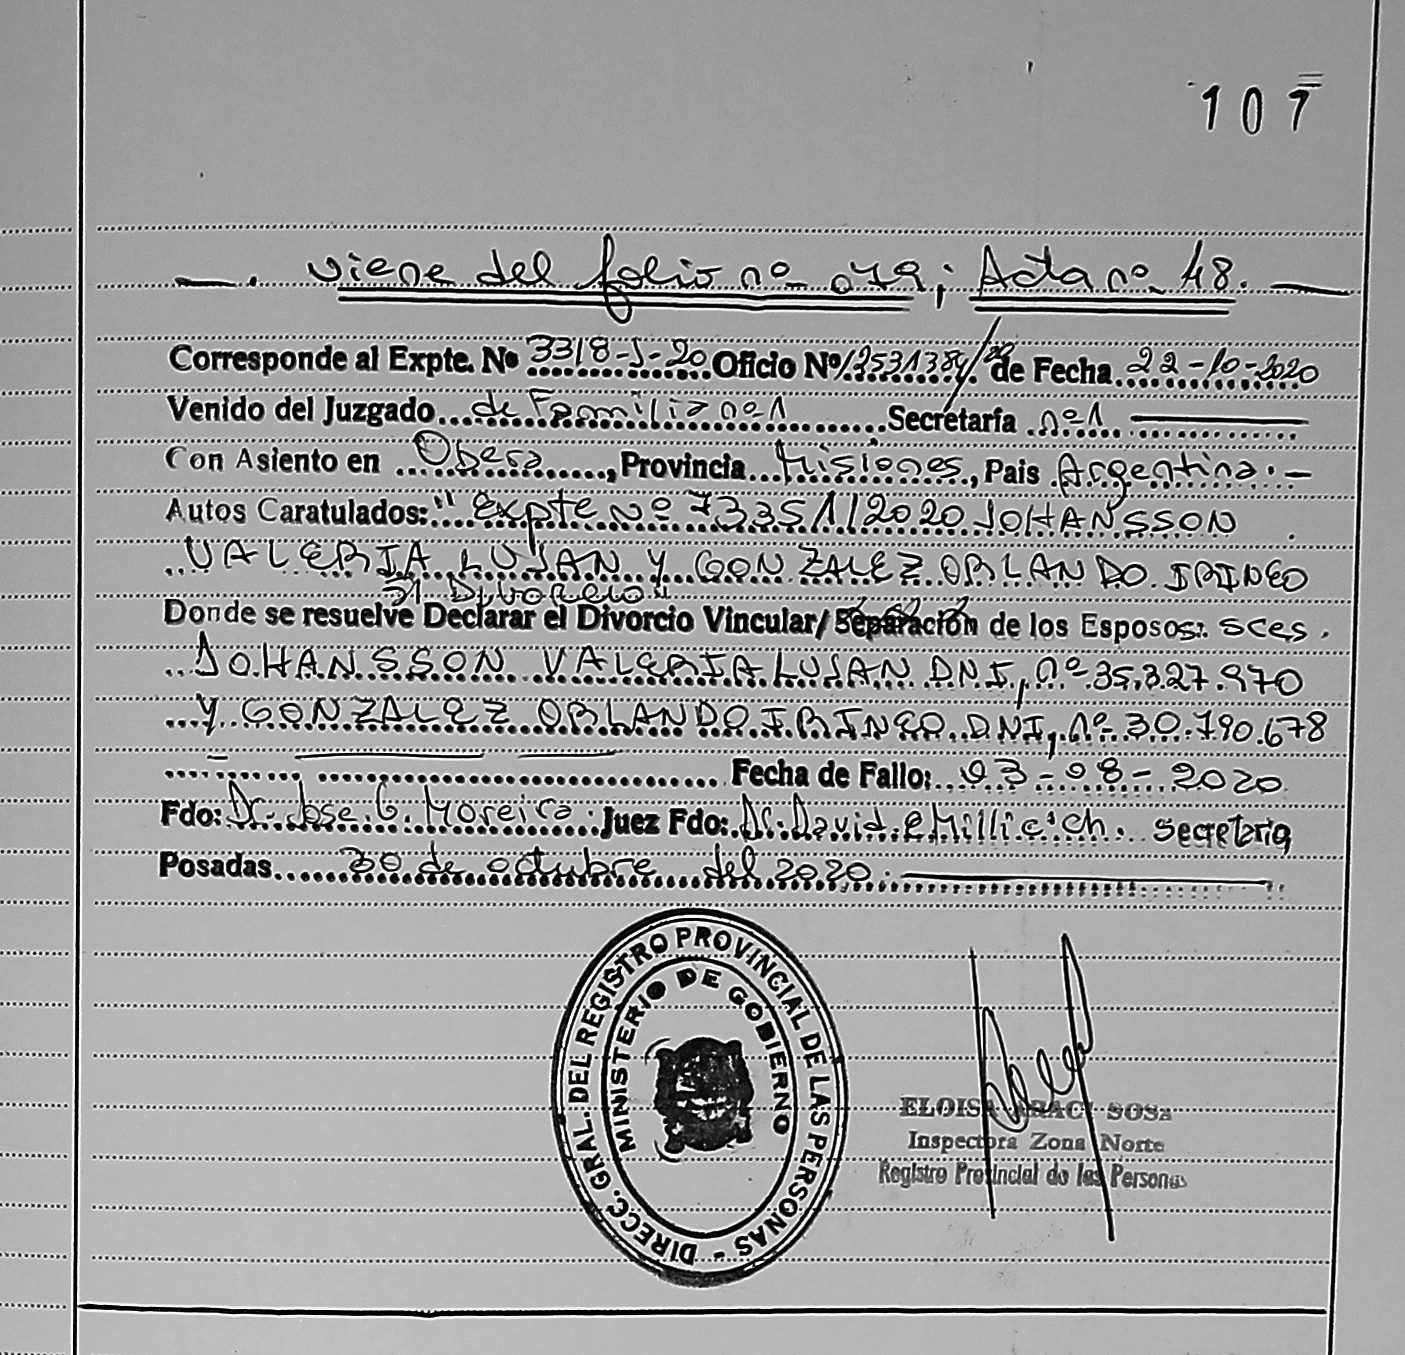 107
viene del folio nº 079; Acta nº 48.
Corresponde al Expte. Nº 3318-J-20 Oficio Nº de Fecha 22-10-2020
Venido del Juzgado de Familia nº 1 Secretaría nº 1
Con Asiento en Obera, Provincia Misiones, Pais Argentina.-
Autos Caratulados: "Expte Nº 73351/2020 JOHANSSON
VALERIA LUJAN Y GONZALEZ ORLANDO IRINEO
S/ Divorcio"
Donde se resuelve Declarar el Divorcio Vincular/Separación de los Esposos: sces.
JOHANSSON VALERIA LUJAN DNI, nº 35.827.970
Y GONZALEZ ORLANDO IRINEO DNI, nº 30.790.678
Fecha de Fallo: 03-08-2020
Fdo: Dr. Jose G. Moreira Juez Fdo: Dr. David. E Secretaria
Posadas 30 de octubre del 2020.
DIRECC. GRAL. DEL REGISTRO PROVINCIAL DE LAS PERSONAS -
MINISTERIO DE GOBIERNO
ELOISA ARACI SOSA
Inspectora Zona Norte
Registro Provincial de las Personas